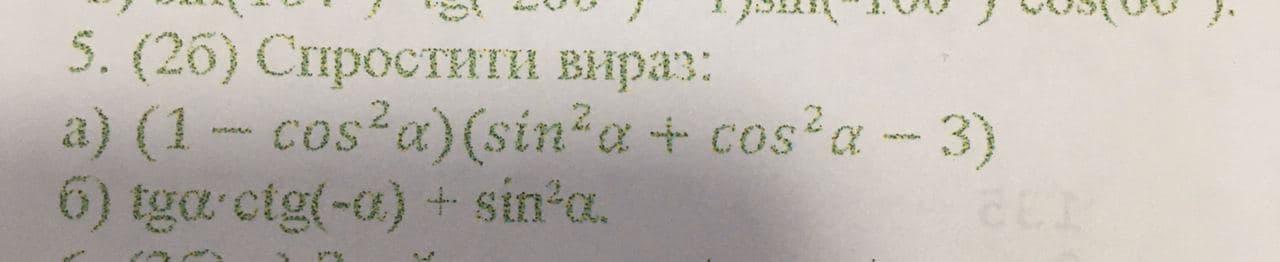 5. (2б) Спростити вираз:
а) (1 − cos²α)(sin²α + cos²α − 3)
б) tgα·ctg(-α) + sin²α.